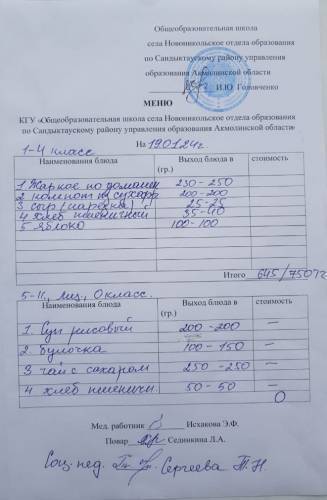 Общеобразовательная школа
села Новоникольское отдела образования
по Сандыктаускому району управления
образования Акмолинской области
И.Ю. Головченко
МЕНЮ
КГУ «Общеобразовательная школа села Новоникольское отдела образования
по Сандыктаускому району управления образования Акмолинской области»
На 19.01.24г
1-4 класс
Наименования блюда Выход блюда в (гр.) стоимость
1 Жаркое по домашн 230-250
2 компот из сухофр 200-200
3 сыр (нарезка) 25-25
4 хлеб пшеничный 35-40
5 яблоко 100-100
Итого 645/750г
5-11, 0 класс.
Наименования блюда Выход блюда в (гр.) стоимость
1. Суп рисовый 200-200 —
2. булочка 100-150 —
3 чай с сахаром 250-250 —
4 хлеб пшеничн. 50-50 —
0
Мед. работник Исхакова Э.Ф.
Повар Сединкина Л.А.
Соц. пед. Сергеева Т.Н.